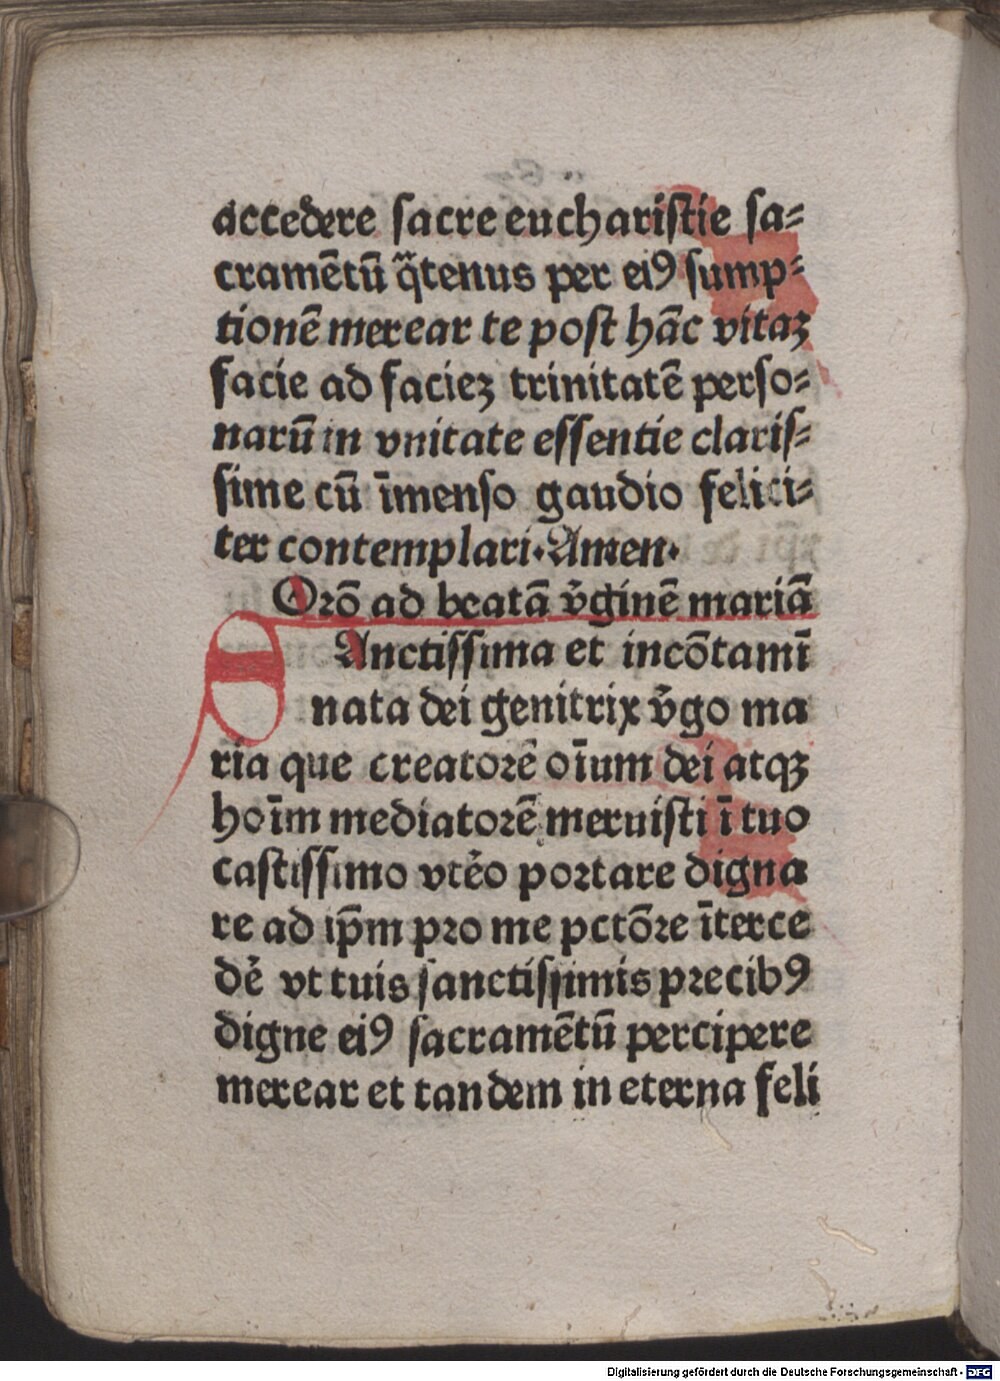 accedere sacre eucharistie sa=
cramētū q̄tenus per ei9 sump=
tionē merear te post hāc vitaȝ
facie ad facieȝ trinitatē perso=
narū in vnitate essentie claris=
sime cū īmenso gaudio felici=
ter contemplari·Amen·
Orō ad beatā v̄ginē mariā
SAnctissima et incōtamī
nata dei genitrix v̄go ma
ria que creatorē oīum dei atqȝ
hoīm mediatorē meruisti ī tuo
castissimo vtēo portare digna
re ad ip̄m pro me pctōre īterce
dē vt tuis sanctissimis precib9
digne ei9 sacramētū percipere
merear et tandem in eterna feli
Digitalisierung gefördert durch die Deutsche Forschungsgemeinschaft - DFG